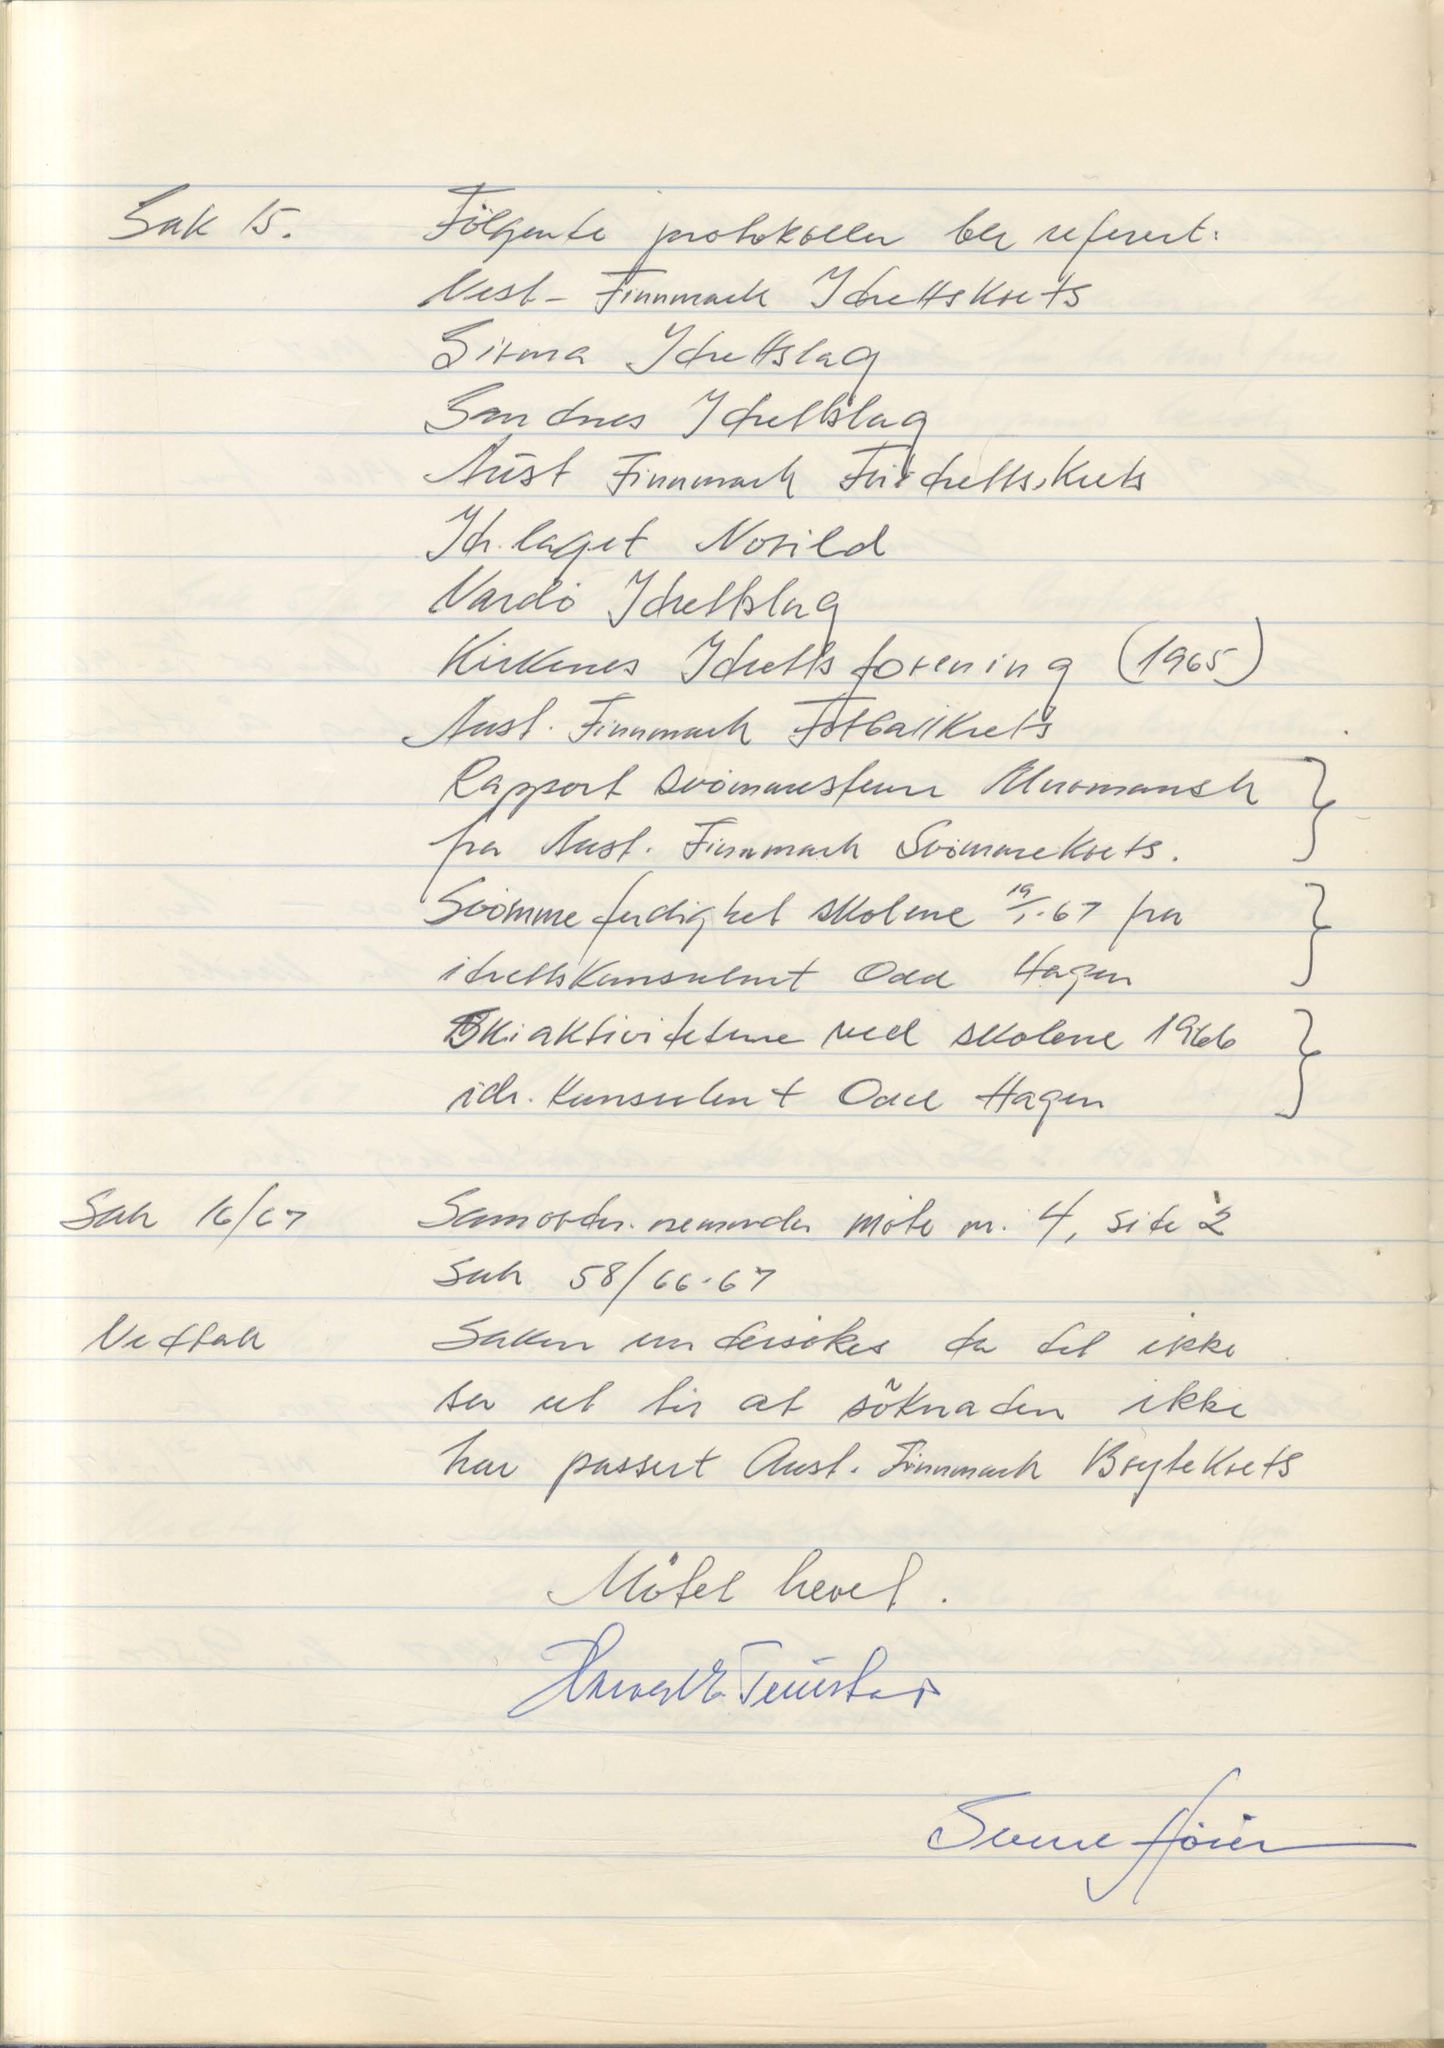 Sak 15. Fölgende protokoller ble referert:
Vest-Finnmark Idrettskrets
Sirma Idrettslag
Sandnes Idrettslag
Aust Finnmark Friidrettskrets
Idr.laget Norild
Vardö Idrettslag
Kirkenes Idrettsforening (1965)
Aust-Finnmark Fotballkrets
Rapport svömmestevne Murmansk
fra Aust-Finnmark Svömmekrets.
Svömmeferdighet skolene 19/1-67 fra
idrettskonsulent Odd Hagen
Skiaktivitetene ved skolene 1966
idr. konsulent Odd Hagen
Sak 16/67 Samordn.nemnder möte nr. 4, side 2
Sak 58/66-67
Vedtak Saken undersökes da det ikke
ser ut til at söknaden ikke
har passert Aust-Finnmark Brytekrets
Mötet hevet.